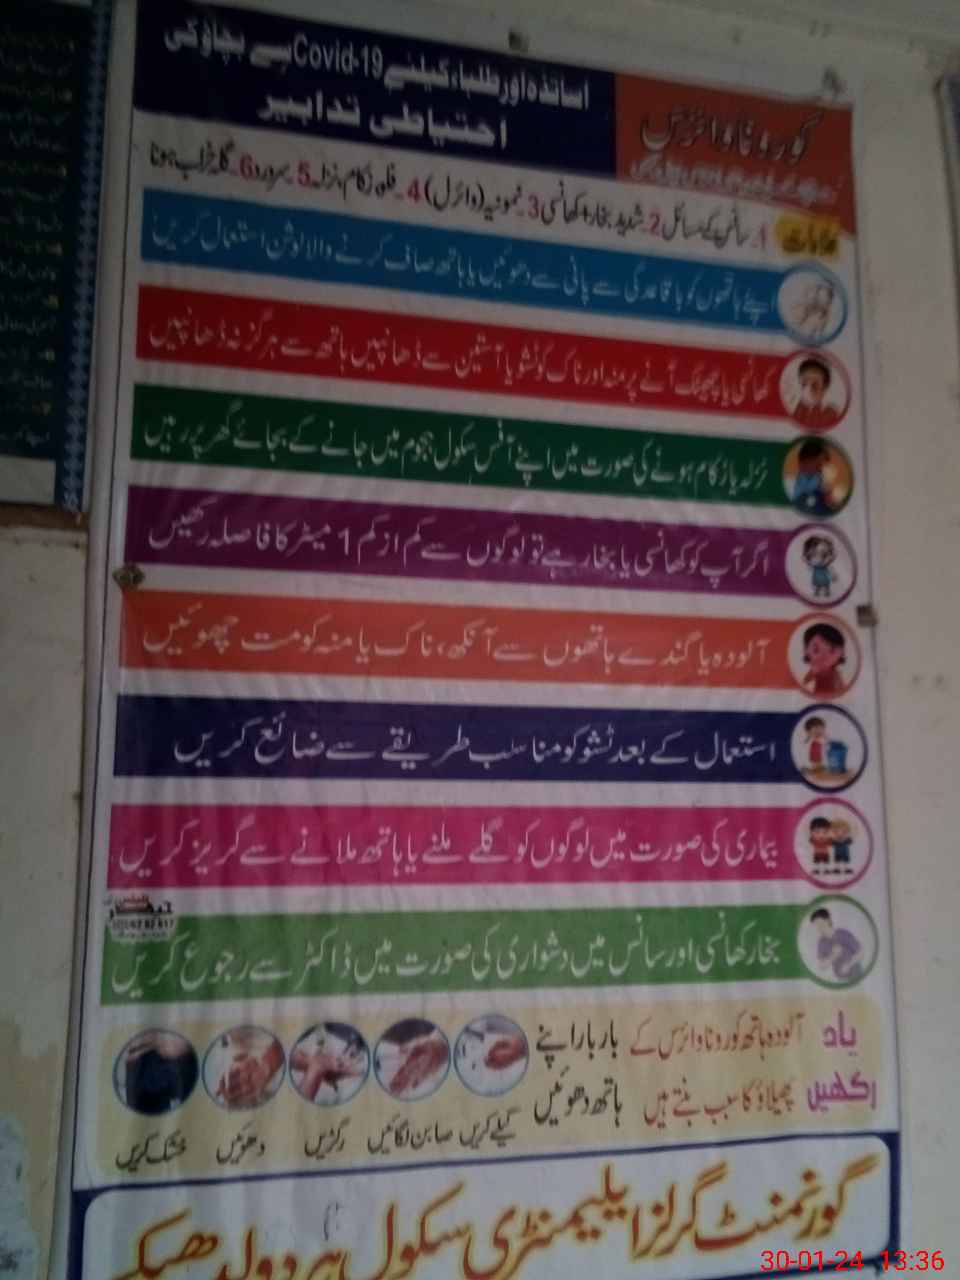 کورونا وائرس
اساتذہ اور طلباء کیلئے Covid-19 سے بچاؤ کی
احتیاطی تدابیر
علامات 1۔ سانس کے مسائل 2۔ شدید بخار+کھانسی 3۔ نمونیہ (وائرل) 4۔ فلو، زکام، نزلہ 5۔ سردرد 6۔ گلہ خراب ہونا
اپنے ہاتھوں کو باقاعدگی سے پانی سے دھوئیں یا ہاتھ صاف کرنے والا لوشن استعمال کریں
کھانسی یا چھینک آنے پر منہ اور ناک کو ٹشو یا آستین سے ڈھانپیں ہاتھ سے ہرگز نہ ڈھانپیں
نزلہ یا زکام ہونے کی صورت میں اپنے آفس سکول ہجوم میں جانے کے بجائے گھر پر رہیں
اگر آپ کو کھانسی یا بخار ہے تو لوگوں سے کم از کم 1 میٹر کا فاصلہ رکھیں
آلودہ یا گندے ہاتھوں سے آنکھ، ناک یا منہ کو مت چھوئیں
استعمال کے بعد ٹشو کو مناسب طریقے سے ضائع کریں
بیماری کی صورت میں لوگوں کو گلے ملنے یا ہاتھ ملانے سے گریز کریں
بخار کھانسی اور سانس میں دشواری کی صورت میں ڈاکٹر سے رجوع کریں
یاد رکھیں
آلودہ ہاتھ کورونا وائرس کے
پھیلاؤ کا سبب بنتے ہیں
بار بار اپنے
ہاتھ دھوئیں
گیلے کریں صابن لگائیں رگڑیں دھوئیں خشک کریں
گورنمنٹ گرلز ایلیمنٹری سکول ہردولدھیکے
30-01-24 13:36